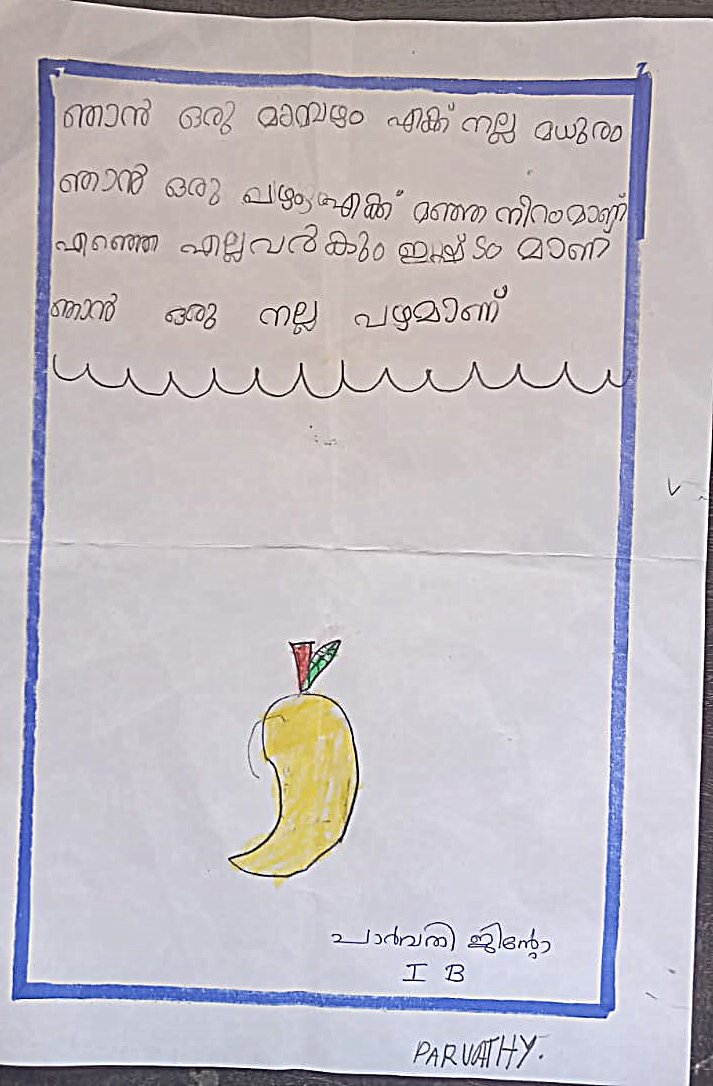 ഞാൻ ഒരു മാമ്പഴം എക്ക് നല്ല മധുരം
ഞാൻ ഒരു എക്ക് മഞ്ഞ നിറം മാണ്
എഞ്ഞെ എല്ലവൽകും ഇഷ്ടം മാണ്
ഞാൻ ഒരു നല്ല പഴമാണ്
പാർവതി ജിന്റോ
I B
PARVATHY.